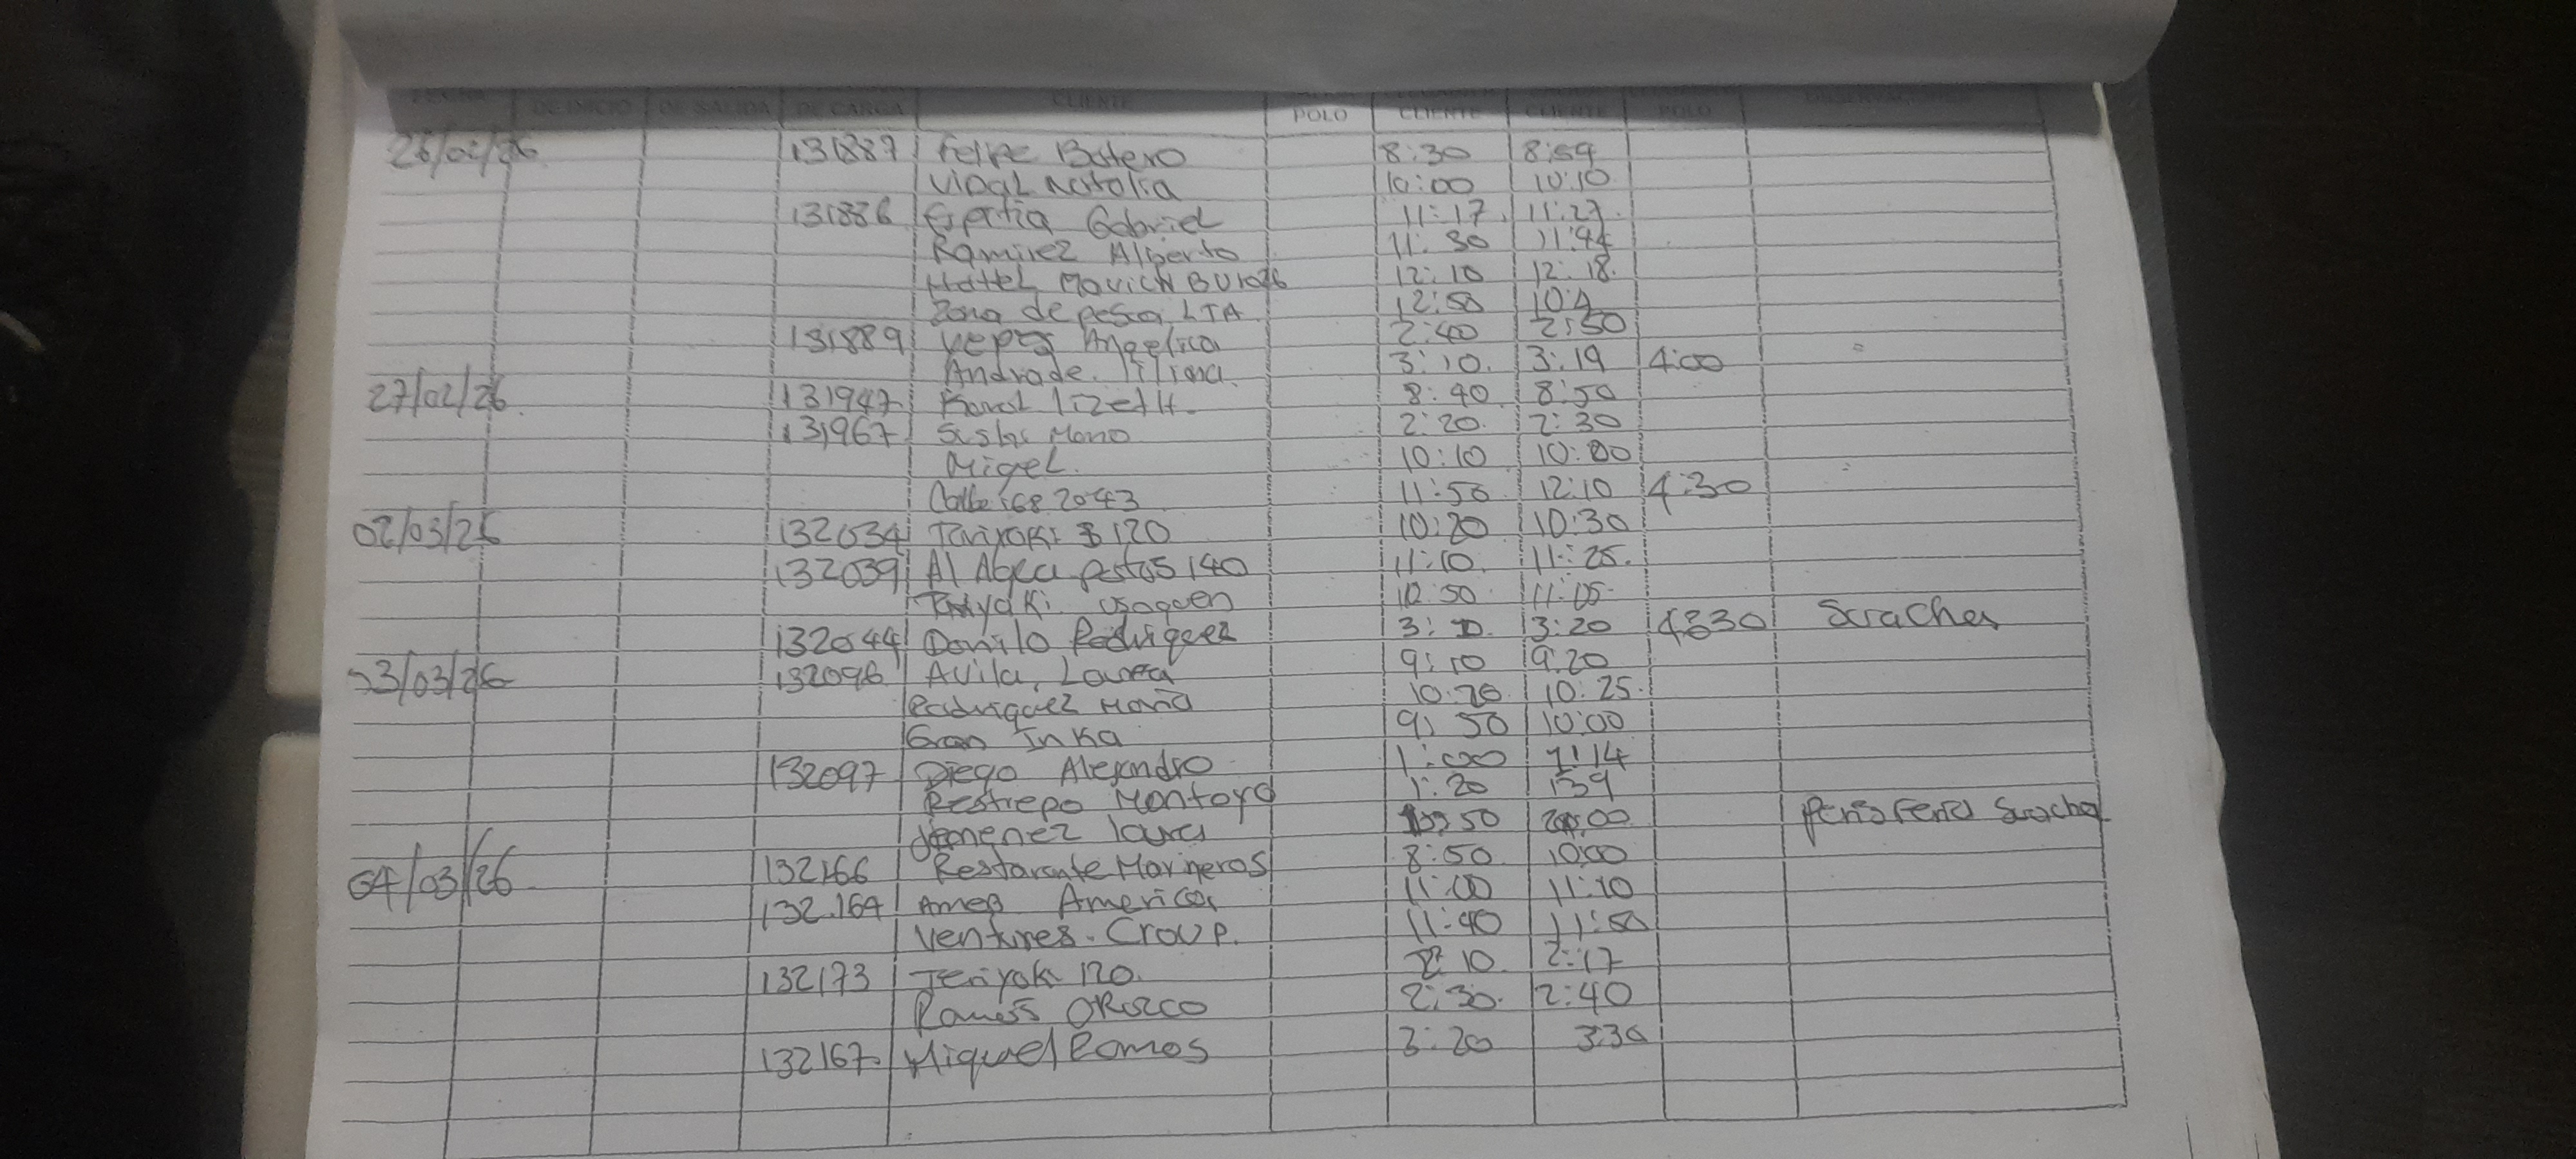 FECHA DE INICIO DE SALIDA DE CARGA CLIENTE POLO CLIENTE CLIENTE POLO OBSERVACIONES
26/02/26 131887 Felipe Botero 8:30 8:59
Vidal Natalia 10:00 10:10
131886 Gabriel 11:17 11:27
Ramirez Alberto 11:30 11:44
Hottel Movich BU1026 12:10 12:18
Zona de pesca LTA 12:50
131889 Yepes Angelica 2:40 2:50
Andrade 3:10 3:19 4:00
27/02/26 131947 Karol lizeth 8:40 8:50
131967 Mono 2:20 2:30
Migel 10:10 10:00
Calle 168 20 43 11:50 12:10 4:30
02/03/26 132034 120 10:20 10:30
132039 Al Agua 140 11:10 11:25
usaquen 10:50 11:05
132044 Danilo Rodriguez 3:20 Suaches
03/03/26 132096 Avila, Laura 9:10 9:20
Rodriguez Maria 10:20 10:25
Gran Inka 9:50 10:00
132097 Diego Alejandro 1:14
Restrepo Montoya 1:20 139
Jimenez laura 50 Periferia
04/03/26 132166 Restarante Marineros 8:50 10:00
132.164 America 11:00 11:10
Ventures. Croup. 11:40 11:50
132173 Teriyaki 120 10 2:17
Ramos Orozco 2:30 2:40
132167 Miguel Ramos 3:20 3:30